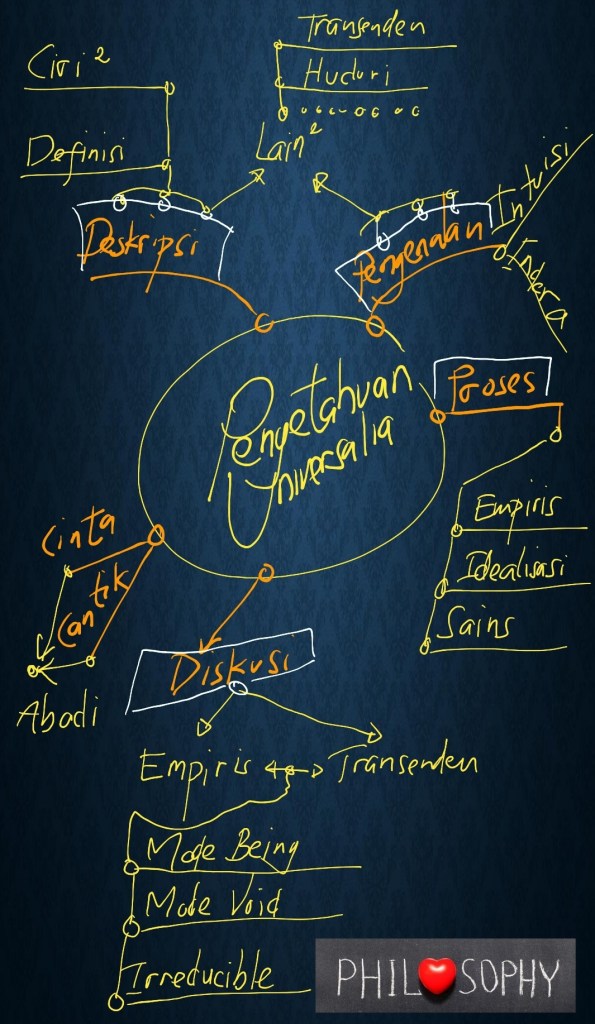 Ciri²
Definisi
Deskripsi
Transenden
Huduri
Lain²
Pengenalan
Intuisi
Indera
Pengetahuan
Universalia
Proses
Empiris
Idealisasi
Sains
Cinta
Cantik
Abadi
Diskusi
Empiris
Transenden
Mode Being
Mode Void
Irreducible
PHIL SOPHY